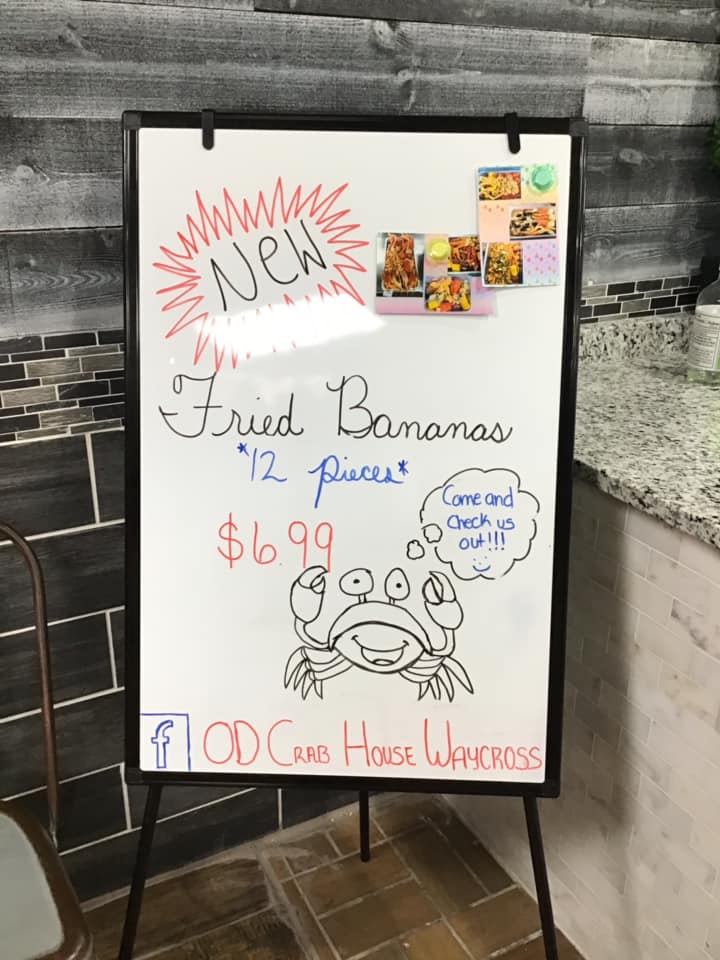 New
Fried Bananas
*12 pieces*
$6.99
Come and
check us
out!!!
f OD CRAB HOUSE WAYCROSS